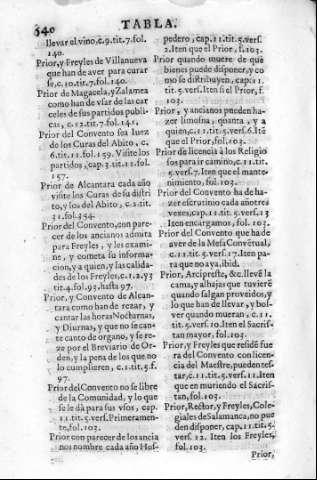 540
TABLA.
llevar el vino, c.9. tit.7. fol.
140.
Prior, y Freyles de Villanueva
que han de aver para curar
se, c.10. tit.7. fol. 140.
Prior de Magacela, y Zalamea
como han de vsar de las car
celes de sus partidos publi-
cas, c.12. tit.7. fol. 141.
Prior del Convento sea Iuez
de los Curas del Abito, c.
6. tit.11. fol. 159. Visite los
partidos, cap.3. tit.11. fol.
157.
Prior de Alcantara cada año
visite los Curas de su distri
to, y sea del Abito, c.2. tit.
31. fol. 354.
Prior del Convento, con pare-
cer de los ancianos admita
para Freyles, y les exami-
ne, y cometa su informa-
cion, y a quien, y las calida-
des de los Freyles, c.1.2. y 3
tit.4. fol. 93. hasta 97.
Prior, y Convento de Alcan-
tara como han de rezar, y
cantar las horas Nocturnas,
y Diurnas, y que no se can-
te canto de organo, y se re-
ze por el Breviario de Or-
den, y la pena de los que no
lo cumplieren, c.11. tit.5. f.
97.
Prior del Convento no se libre
de la Comunidad, y lo que
se le dà para sus vsos, cap.
11. tit.5. vers. Primeramen-
te, fol. 103.
Prior con parecer de los ancia
nos nombre cada año Hos-
pedero, cap.11. tit.5. vers.
2. Iten que el Prior, f. 103.
Prior quando muere de què
bienes puede disponer, y co
mo se distribuyen, cap.11.
tit.5. vers. Iten si el Prior, f.
103.
Prior, y ancianos pueden ha-
zer limosna, quanta, y a
quien, c.11. tit.5. vers. 6. Itē
que el Prior, fol. 103.
Prior dè licencia à los Religio
sos para ir camino, c.11. tit.
5. vers. 7. Iten que el mante-
nimiento, fol. 103.
Prior del Convento ha de ha-
zer escrutinio cada año tres
vezes, cap.11. tit.5. vers. 13
Iten encargamos, fol. 103.
Prior del Convento que ha de
aver de la Mesa Convētual,
c.11. tit.5. vers. 17. Iten pa-
ra que no aya, ibid.
Prior, Arcipreste, &c. llevē la
cama, y alhajas que tuvierē
quando salgan proveidos, y
lo que han de llevar, y bol-
ver quando mueran, c.11.
tit.5. vers. 10. Iten el Sacris-
tan mayor, fol. 103.
Prior, y Freyles que residē fue
ra del Convento con licen-
cia del Maestre, puedē tes-
tar, c.11. tit.5. vers. 11. Iten
que en muriendo el Sacris-
tan, fol. 103.
Prior, Rector, y Freyles, Cole-
giales de Salamanca, no pue
den disponer, cap.11. tit.5.
vers. 12. Iten los Freyles,
fol. 103.
Prior,